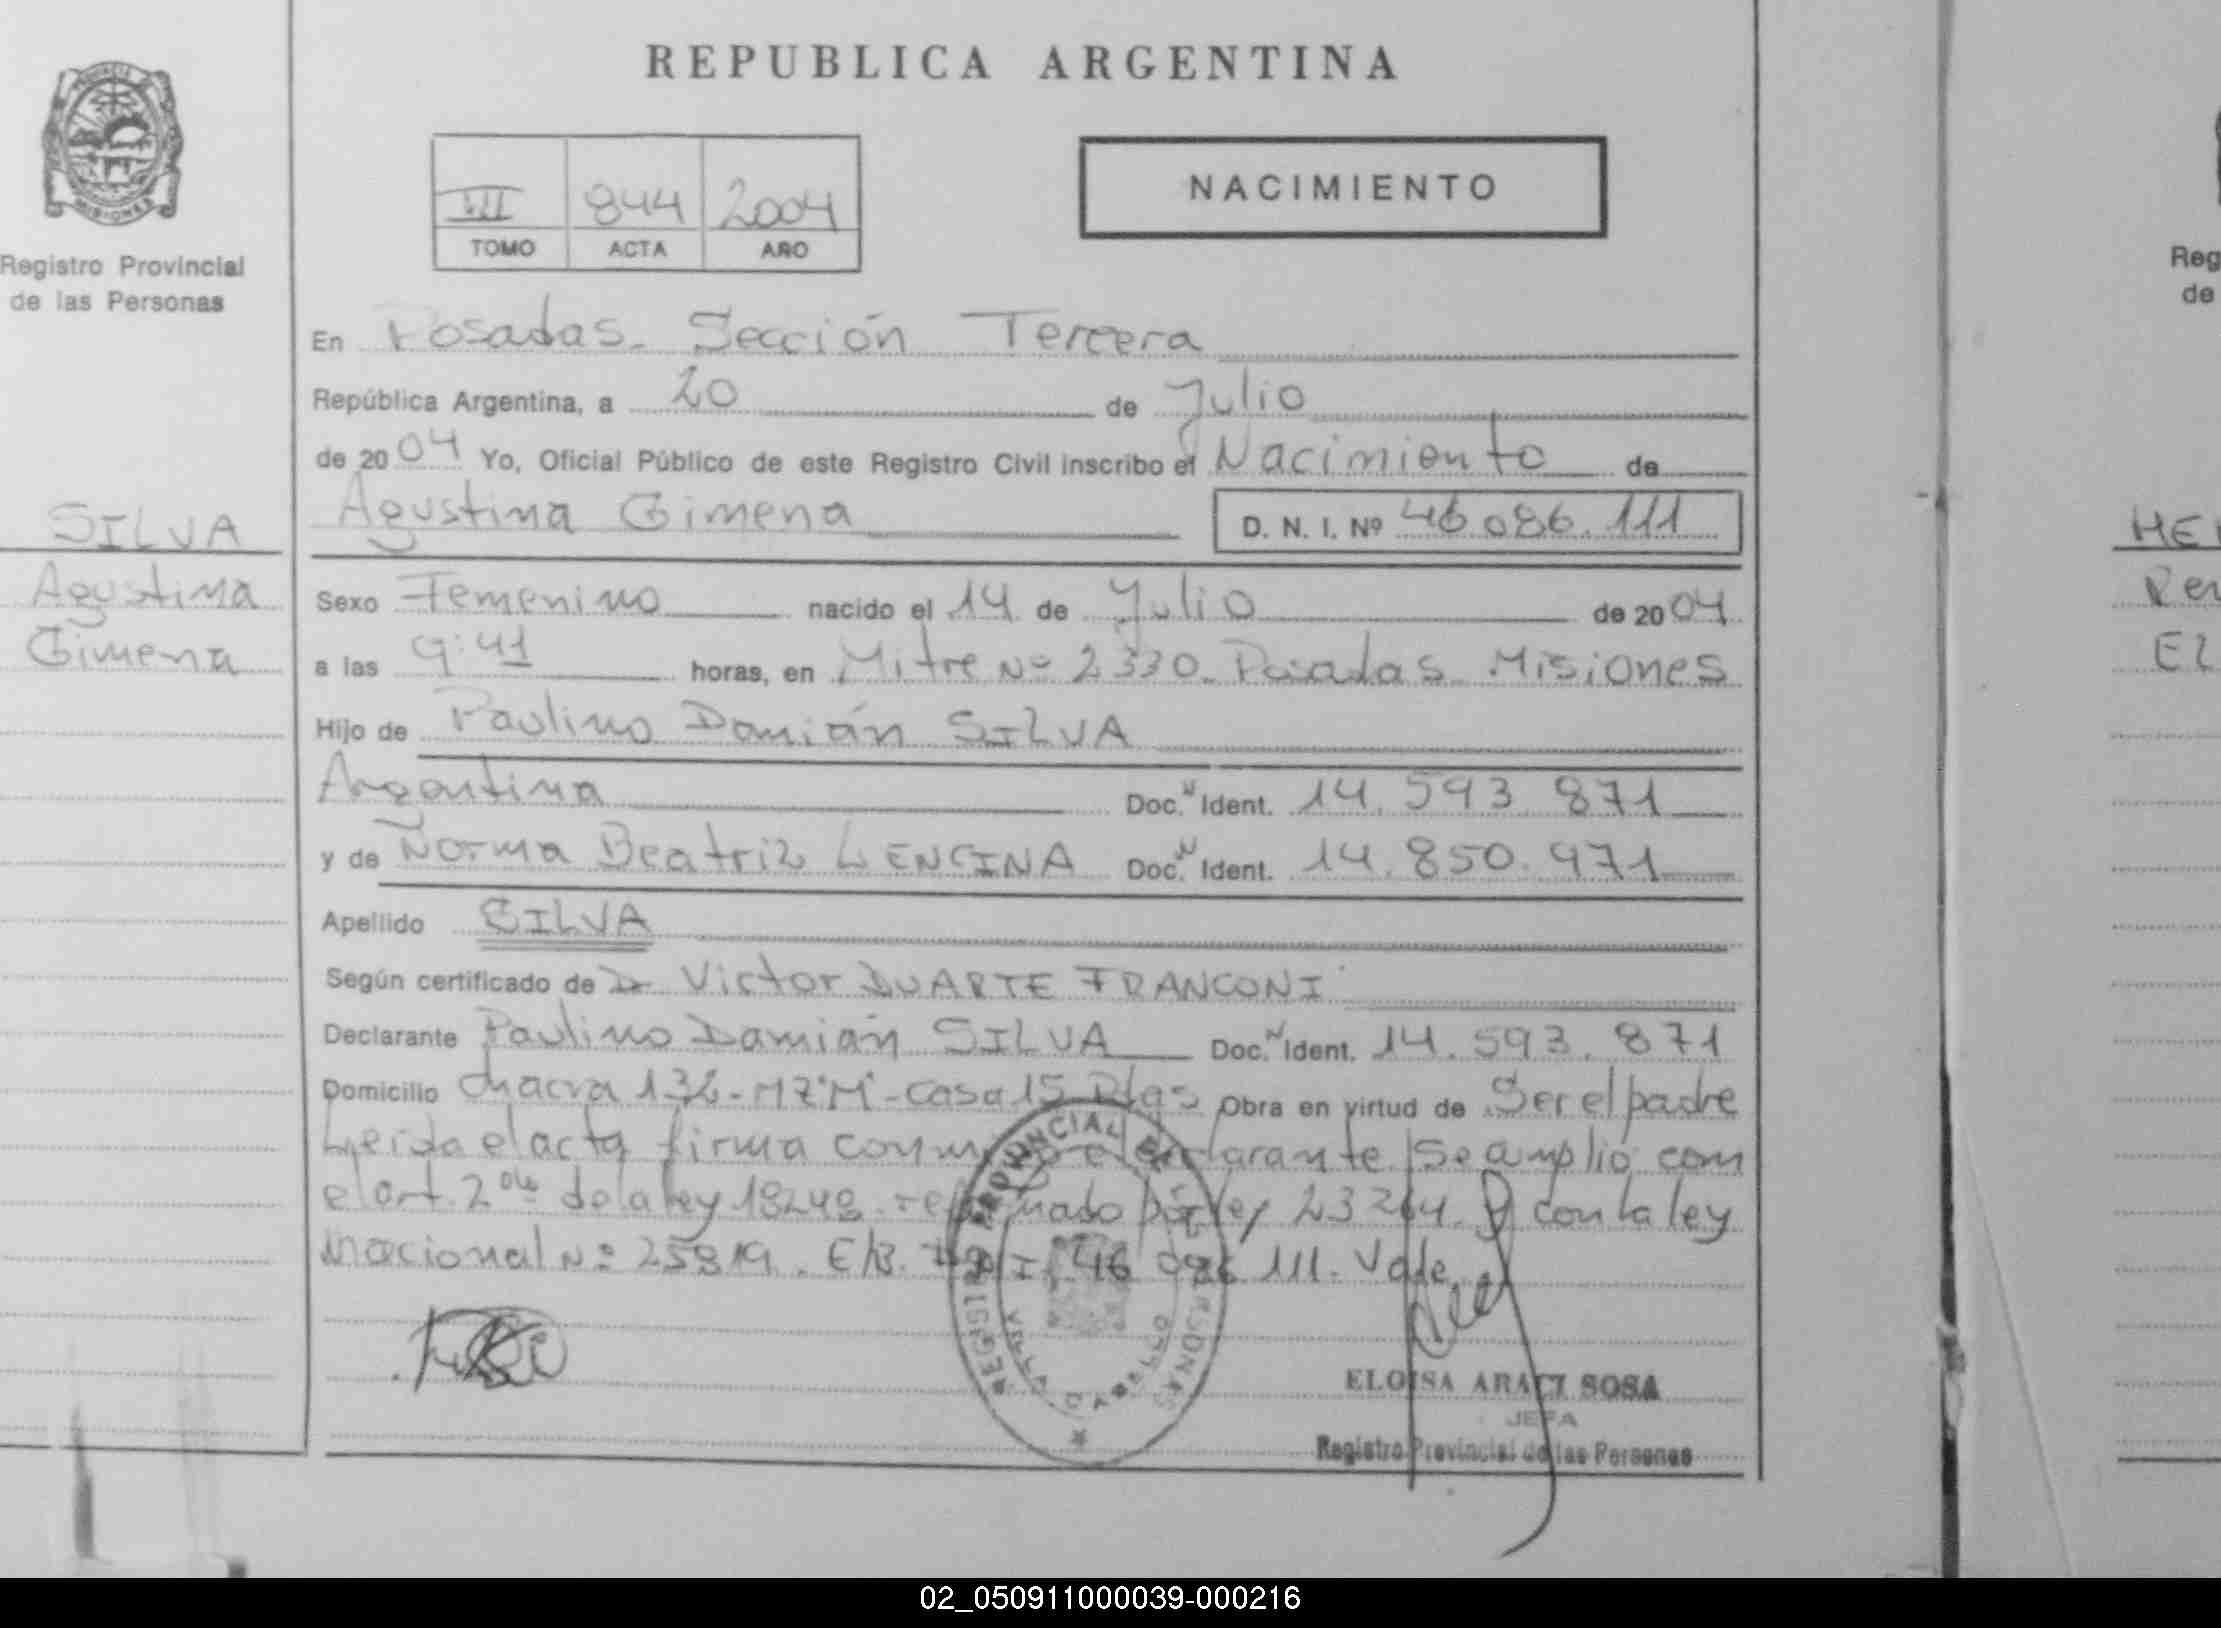 REPUBLICA ARGENTINA
PROVINCIA DE
MISIONES
Registro Provincial
de las Personas
VII 844 2004
TOMO ACTA AÑO
NACIMIENTO
En Posadas - Sección Tercera
República Argentina, a 20 de Julio
de 2004 Yo, Oficial Público de este Registro Civil inscribo el Nacimiento de
Agustina Gimena D. N. I. Nº 46.086.111
SILVA
Agustina
Gimena
Sexo Femenino nacido el 14 de Julio de 2004
a las 9:41 horas, en Mitre Nº 2330 - Posadas - Misiones
Hijo de Paulino Damián SILVA
Argentina Doc. N Ident. 14.593.871
y de Norma Beatriz LENCINA Doc. N Ident. 14.850.971
Apellido SILVA
Según certificado de Dr Victor DUARTE FRANCONI
Declarante Paulino Damián SILVA Doc. N Ident. 14.593.871
Domicilio Chacra 132 - MZ "M" - Casa 15 Pdas Obra en virtud de Ser el padre
Leida el acta firma conmigo el declarante. Se amplió con
el art. 2 de la ley 18248 reformado por ley 23264. Y con la ley
Nacional Nº 25819. E/R. 46 086 111. Vale.
REGISTRO PROVINCIAL DE LAS PERSONAS
VILLA CABELLO
ELOISA ARACI SOSA
JEFA
Registro Provincial de las Personas
Reg
de
MER
Ren
EL
02_050911000039-000216